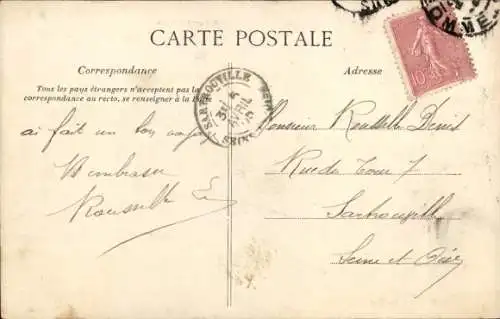 CARTE POSTALE
Correspondance
Tous les pays étrangers n'acceptent pas la
correspondance au recto, se renseigner à la Poste
Adresse
SARTROUVILLE
AVRIL
SEINE
OMME
10
ai fait un bon voyage
Rousselle
Monsieur Rousselle Denis
Rue de Tour 7
Sartrouville
Seine et Oise